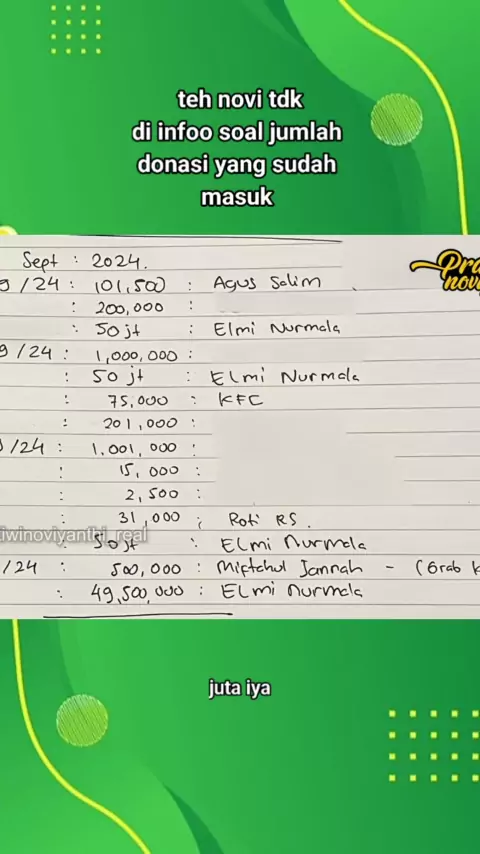 teh novi tdk
di infoo soal jumlah
donasi yang sudah
masuk
Sept : 2024.
9 /24 : 101,500 : Agus Salim
: 200,000 :
: 50 jt : Elmi Nurmala
9 /24 : 1,000,000 :
: 50 jt : Elmi Nurmala
: 75,000 : KFC
: 201,000 :
/24 : 1.001,000 :
: 15,000 :
: 2,500 :
: 31,000 : Roti RS.
iwinoviyanthi_real
: 50 jt : Elmi Nurmala
/24 : 500,000 : Miptahul Jannah - (Grab K
: 49,500,000 : Elmi Nurmala
Pra
novi
juta iya